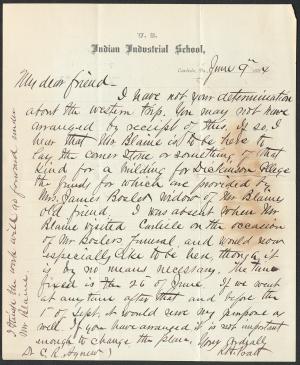 U. S.
Indian Industrial School,
Carlisle, Pa., June 9th 1884
My dear friend—
I have not your determination
about the western trip. You may not have
arranged by receipt of this. If so, I
hear that Mr Blaine is to be here to
lay the corner stone or something of that
kind for a building for Dickinson College
the funds for which are provided by
Mrs. James Bosler widow of Mr Blaine's
old friend. I was absent when Mr
Blaine visited Carlisle on the occasion
of Mr Boslers funeral, and would now
especially like to be here, though it
is by no means necessary. The time
fixed is the 26 of June. If we went
at any time after that and before the
1st of Sept. it would serve my purpose as
well. If you have arranged it is not important
enough to change the plans. Very cordially
R H Pratt
Dr C. R. Agnew
I think the work will go forward under
Mr Blaine.